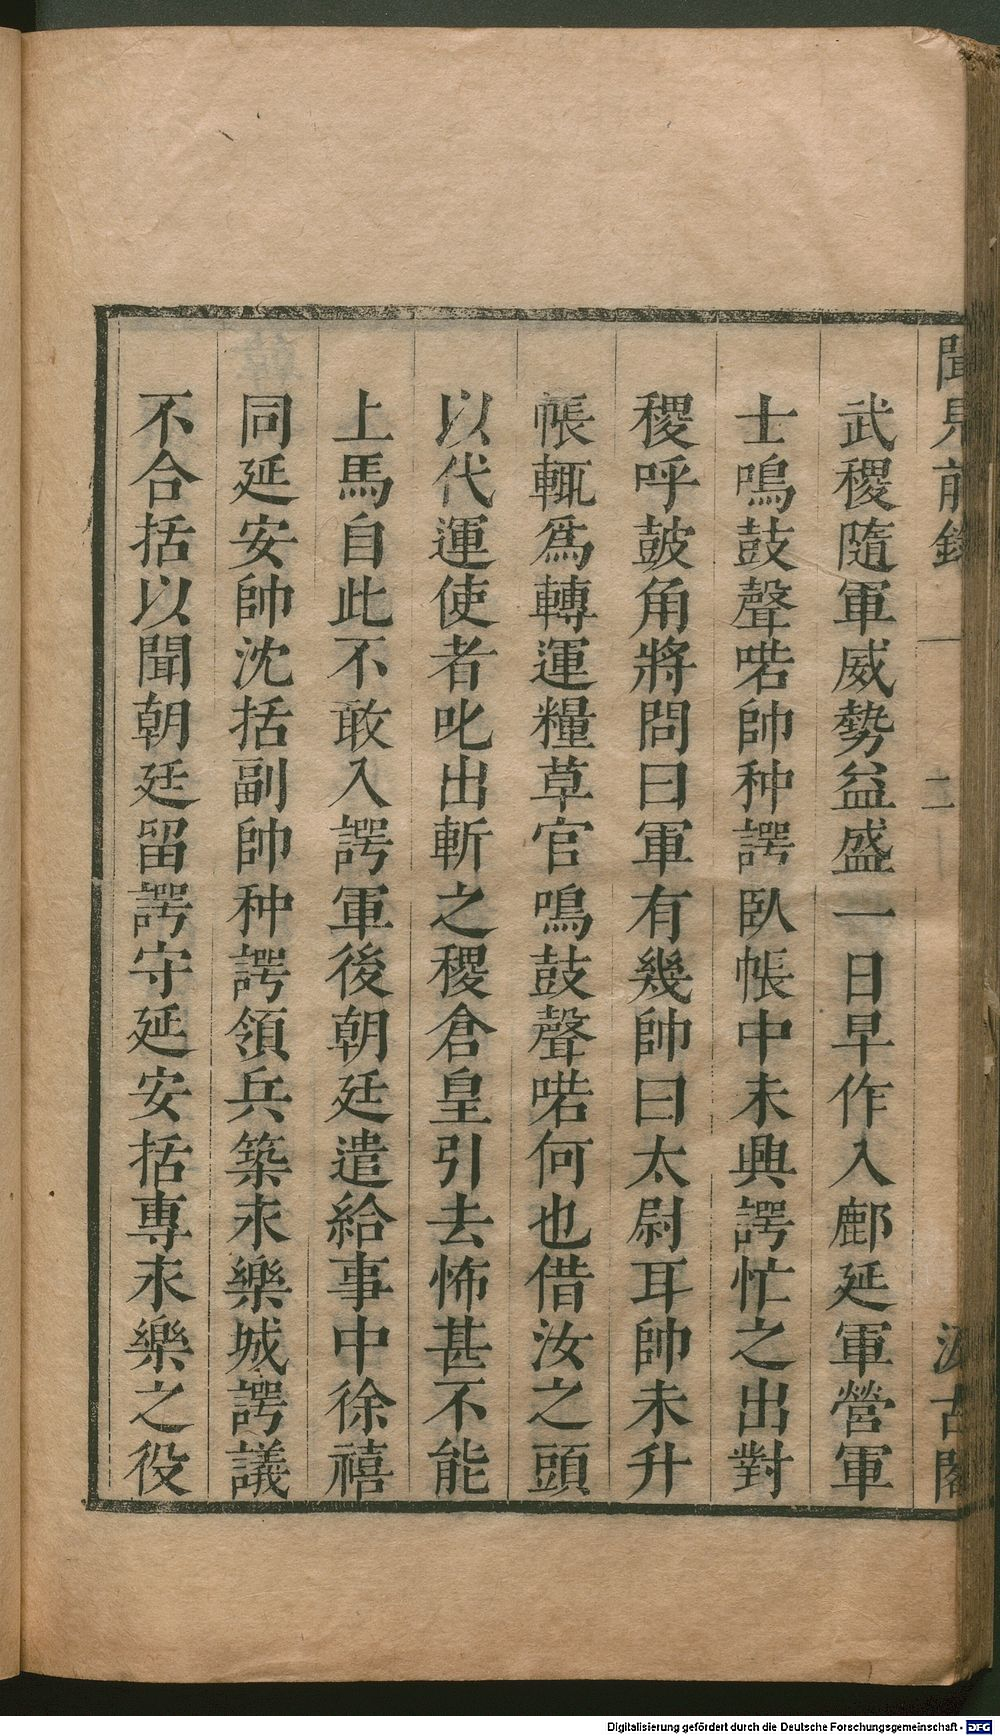 聞見前錄 一 二 汲古閣
武稷隨軍威勢益盛一日早作入鄜延軍營軍
士鳴鼓聲喏帥种諤臥帳中未興諤忙之出對
稷呼鼓角將問曰軍有幾帥曰太尉耳帥未升
帳輒爲轉運糧草官鳴鼓聲喏何也借汝之頭
以代運使者叱出斬之稷倉皇引去怖甚不能
上馬自此不敢入諤軍後朝廷遣給事中徐禧
同延安帥沈括副帥种諤領兵築永樂城諤議
不合括以聞朝廷留諤守延安括專永樂之役
Digitalisierung gefördert durch die Deutsche Forschungsgemeinschaft - DFG